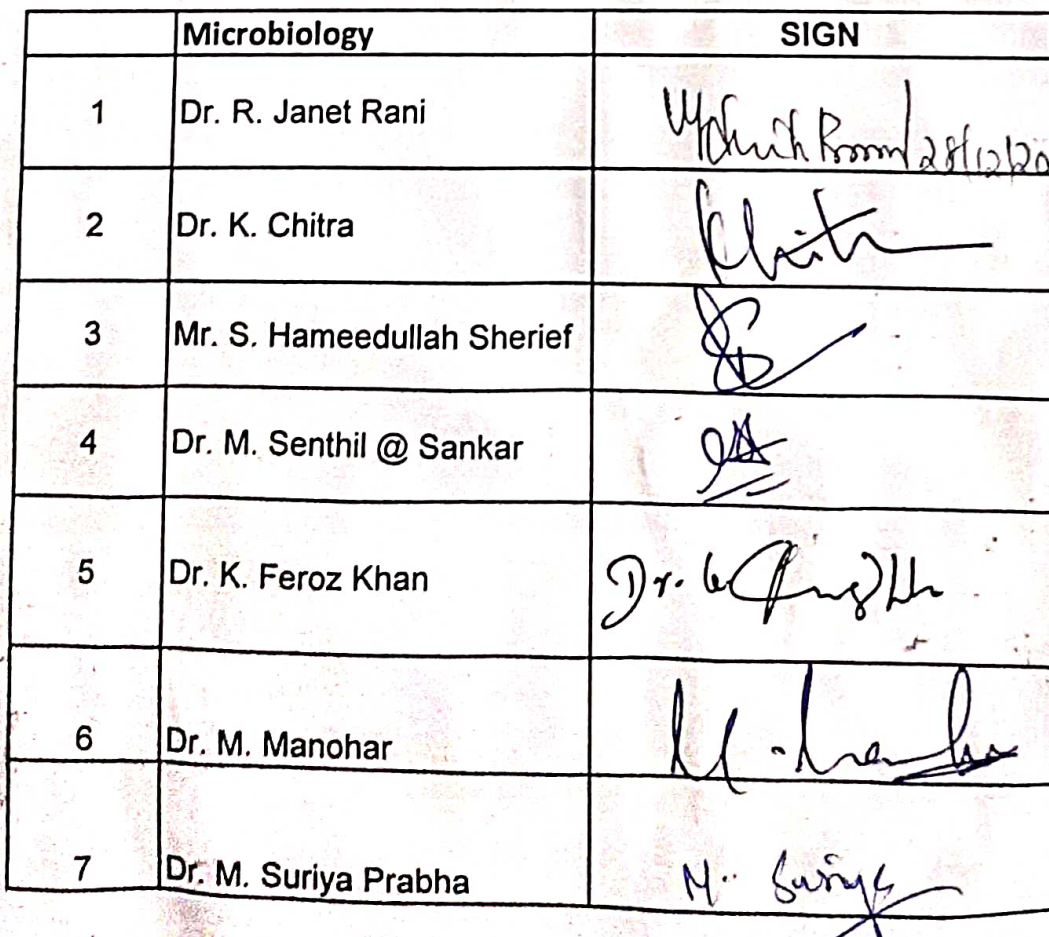 Microbiology SIGN
1 Dr. R. Janet Rani 28/12/20
2 Dr. K. Chitra
3 Mr. S. Hameedullah Sherief
4 Dr. M. Senthil @ Sankar
5 Dr. K. Feroz Khan Dr.
6 Dr. M. Manohar
7 Dr. M. Suriya Prabha M. Suriya